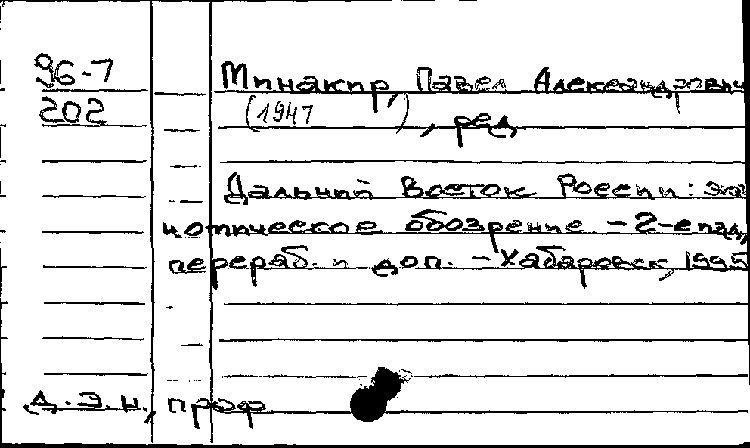 96-7
202
Минакир, Павел Александрович
(1947 ) , ред.
Дальний Восток России: эко
номическое обозрение - 2-е изд.,
перераб. и доп. - Хабаровск, 1995
Д.Э.Н., проф